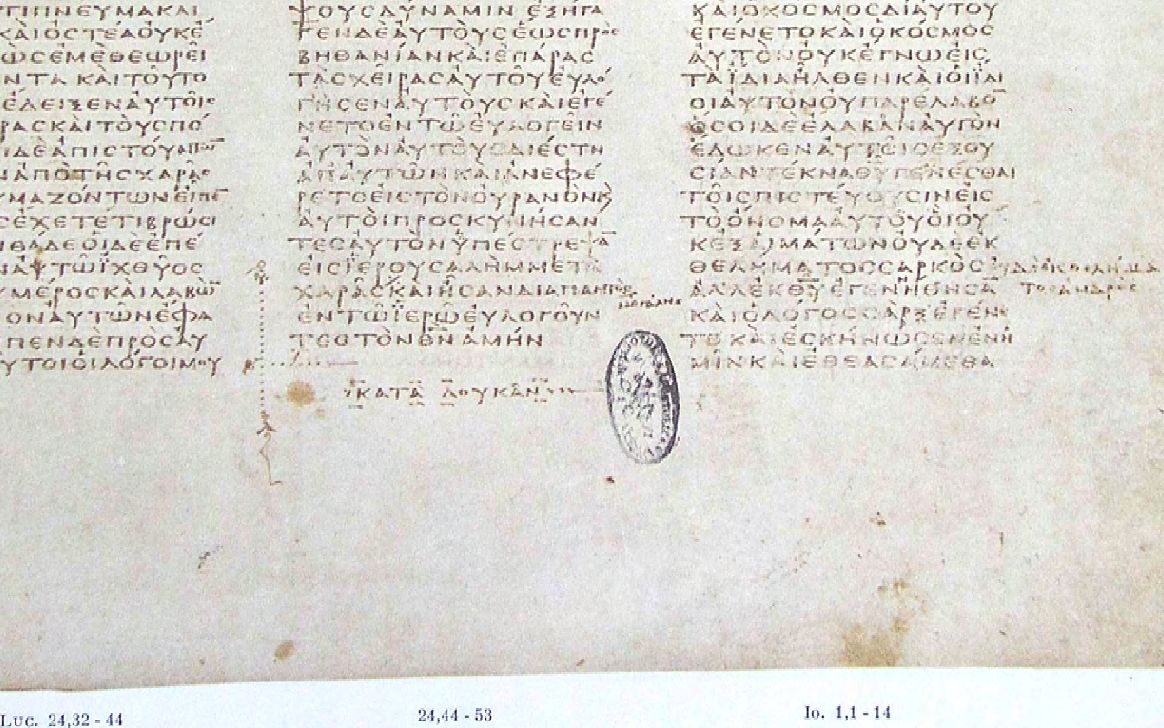 ΠΝΕΥΜΑΚΑΙ
ΚΑΙΟCΤΕΑΟΥΚΕ
ΩCΕΜΕΘΕΩΡΕΙ
ΝΤΑΚΑΙΤΟΥΤΟ
ΕΔΕΙΞΕΝΑΥΤΟΙC
ΡΑCΚΑΙΤΟΥCΠΟ
ΙΔΕΑΠΙCΤΟΥΝΤΩ̅
ΝΑΠΟΤΗCΧΑΡΑC
ΥΜΑΖΟΝΤΩΝΕΙΠΕ̅
CΕΧΕΤΕΤΙΒΡΩCΙ
ΘΑΔΕΟΙΔΕΕΠΕ
ΝΑΥΤΩΙΧΘΥΟC
ΥΜΕΡΟCΚΑΙΛΑΒΩ̅
ΟΝΑΥΤΩΝΕΦΑ
ΠΕΝΔΕΠΡΟCΑΥ
ΥΤΟΙΟΙΛΟΓΟΙΜΟΥ
ΨΟΥCΔΥΝΑΜΙΝΕΞΗΓΑ
ΓΕΝΔΕΑΥΤΟΥCΕΩCΠΡΟC
ΒΗΘΑΝΙΑΝΚΑΙΕΠΑΡΑC
ΤΑCΧΕΙΡΑCΑΥΤΟΥΕΥΛΟ
ΓΗCΕΝΑΥΤΟΥCΚΑΙΕΓΕ
ΝΕΤΟΕΝΤΩΕΥΛΟΓΕΙΝ
ΑΥΤΟΝΑΥΤΟΥCΔΙΕCΤΗ
ΑΠΑΥΤΩΝΚΑΙΑΝΕΦΕ
ΡΕΤΟΕΙCΤΟΝΟΥΡΑΝΟΝΚ
ΑΥΤΟΙΠΡΟCΚΥΝΗCΑΝ
ΤΕCΑΥΤΟΝΫΠΕCΤΡΕΨΑ̅
ΕΙCΪΕΡΟΥCΑΛΗΜΜΕΤΑ
ΧΑΡΑCΚΑΙΗCΑΝΔΙΑΠΑΝΤΟC
ΕΝΤΩΪΕΡΩΕΥΛΟΓΟΥΝ
ΤΕCΤΟΝΘ̅Ν̅ΑΜΗΝ
ΚΑΤΑ ΛΟΥΚΑΝ
ΚΑΙΟΚΟCΜΟCΔΙΑΥΤΟΥ
ΕΓΕΝΕΤΟΚΑΙΟΚΟCΜΟC
ΑΥΤΟΝΟΥΚΕΓΝΩΕΙC
ΤΑΪΔΙΑΗΛΘΕΝΚΑΙΟΙΪΔΙ
ΟΙΑΥΤΟΝΟΥΠΑΡΕΛΑΒΟ̅
ΟCΟΙΔΕΕΛΑΒΑΝΑΥΤΟΝ
ΕΔΩΚΕΝΑΥΤΟΙCΕΞΟΥ
CΙΑΝΤΕΚΝΑΘΥΓΕΝΕCΘΑΙ
ΤΟΙCΠΙCΤΕΥΟΥCΙΝΕΙC
ΤΟΟΝΟΜΑΑΥΤΟΥΟΙΟΥ
ΚΕΞΑΙΜΑΤΩΝΟΥΔΕΕΚ
ΘΕΛΗΜΑΤΟCCΑΡΚΟC
ΑΛΛΕΚΘΥΕΓΕΝΗΘΗCΑ
ΚΑΙΟΛΟΓΟCCΑΡΞΕΓΕΝΕ
ΤΟΚΑΙΕCΚΗΝΩCΕΝΕΝΗ
ΜΙΝΚΑΙΕΘΕΑCΑΜΕΘΑ
Luc. 24,32 - 44
24,44 - 53
Io. 1,1 - 14